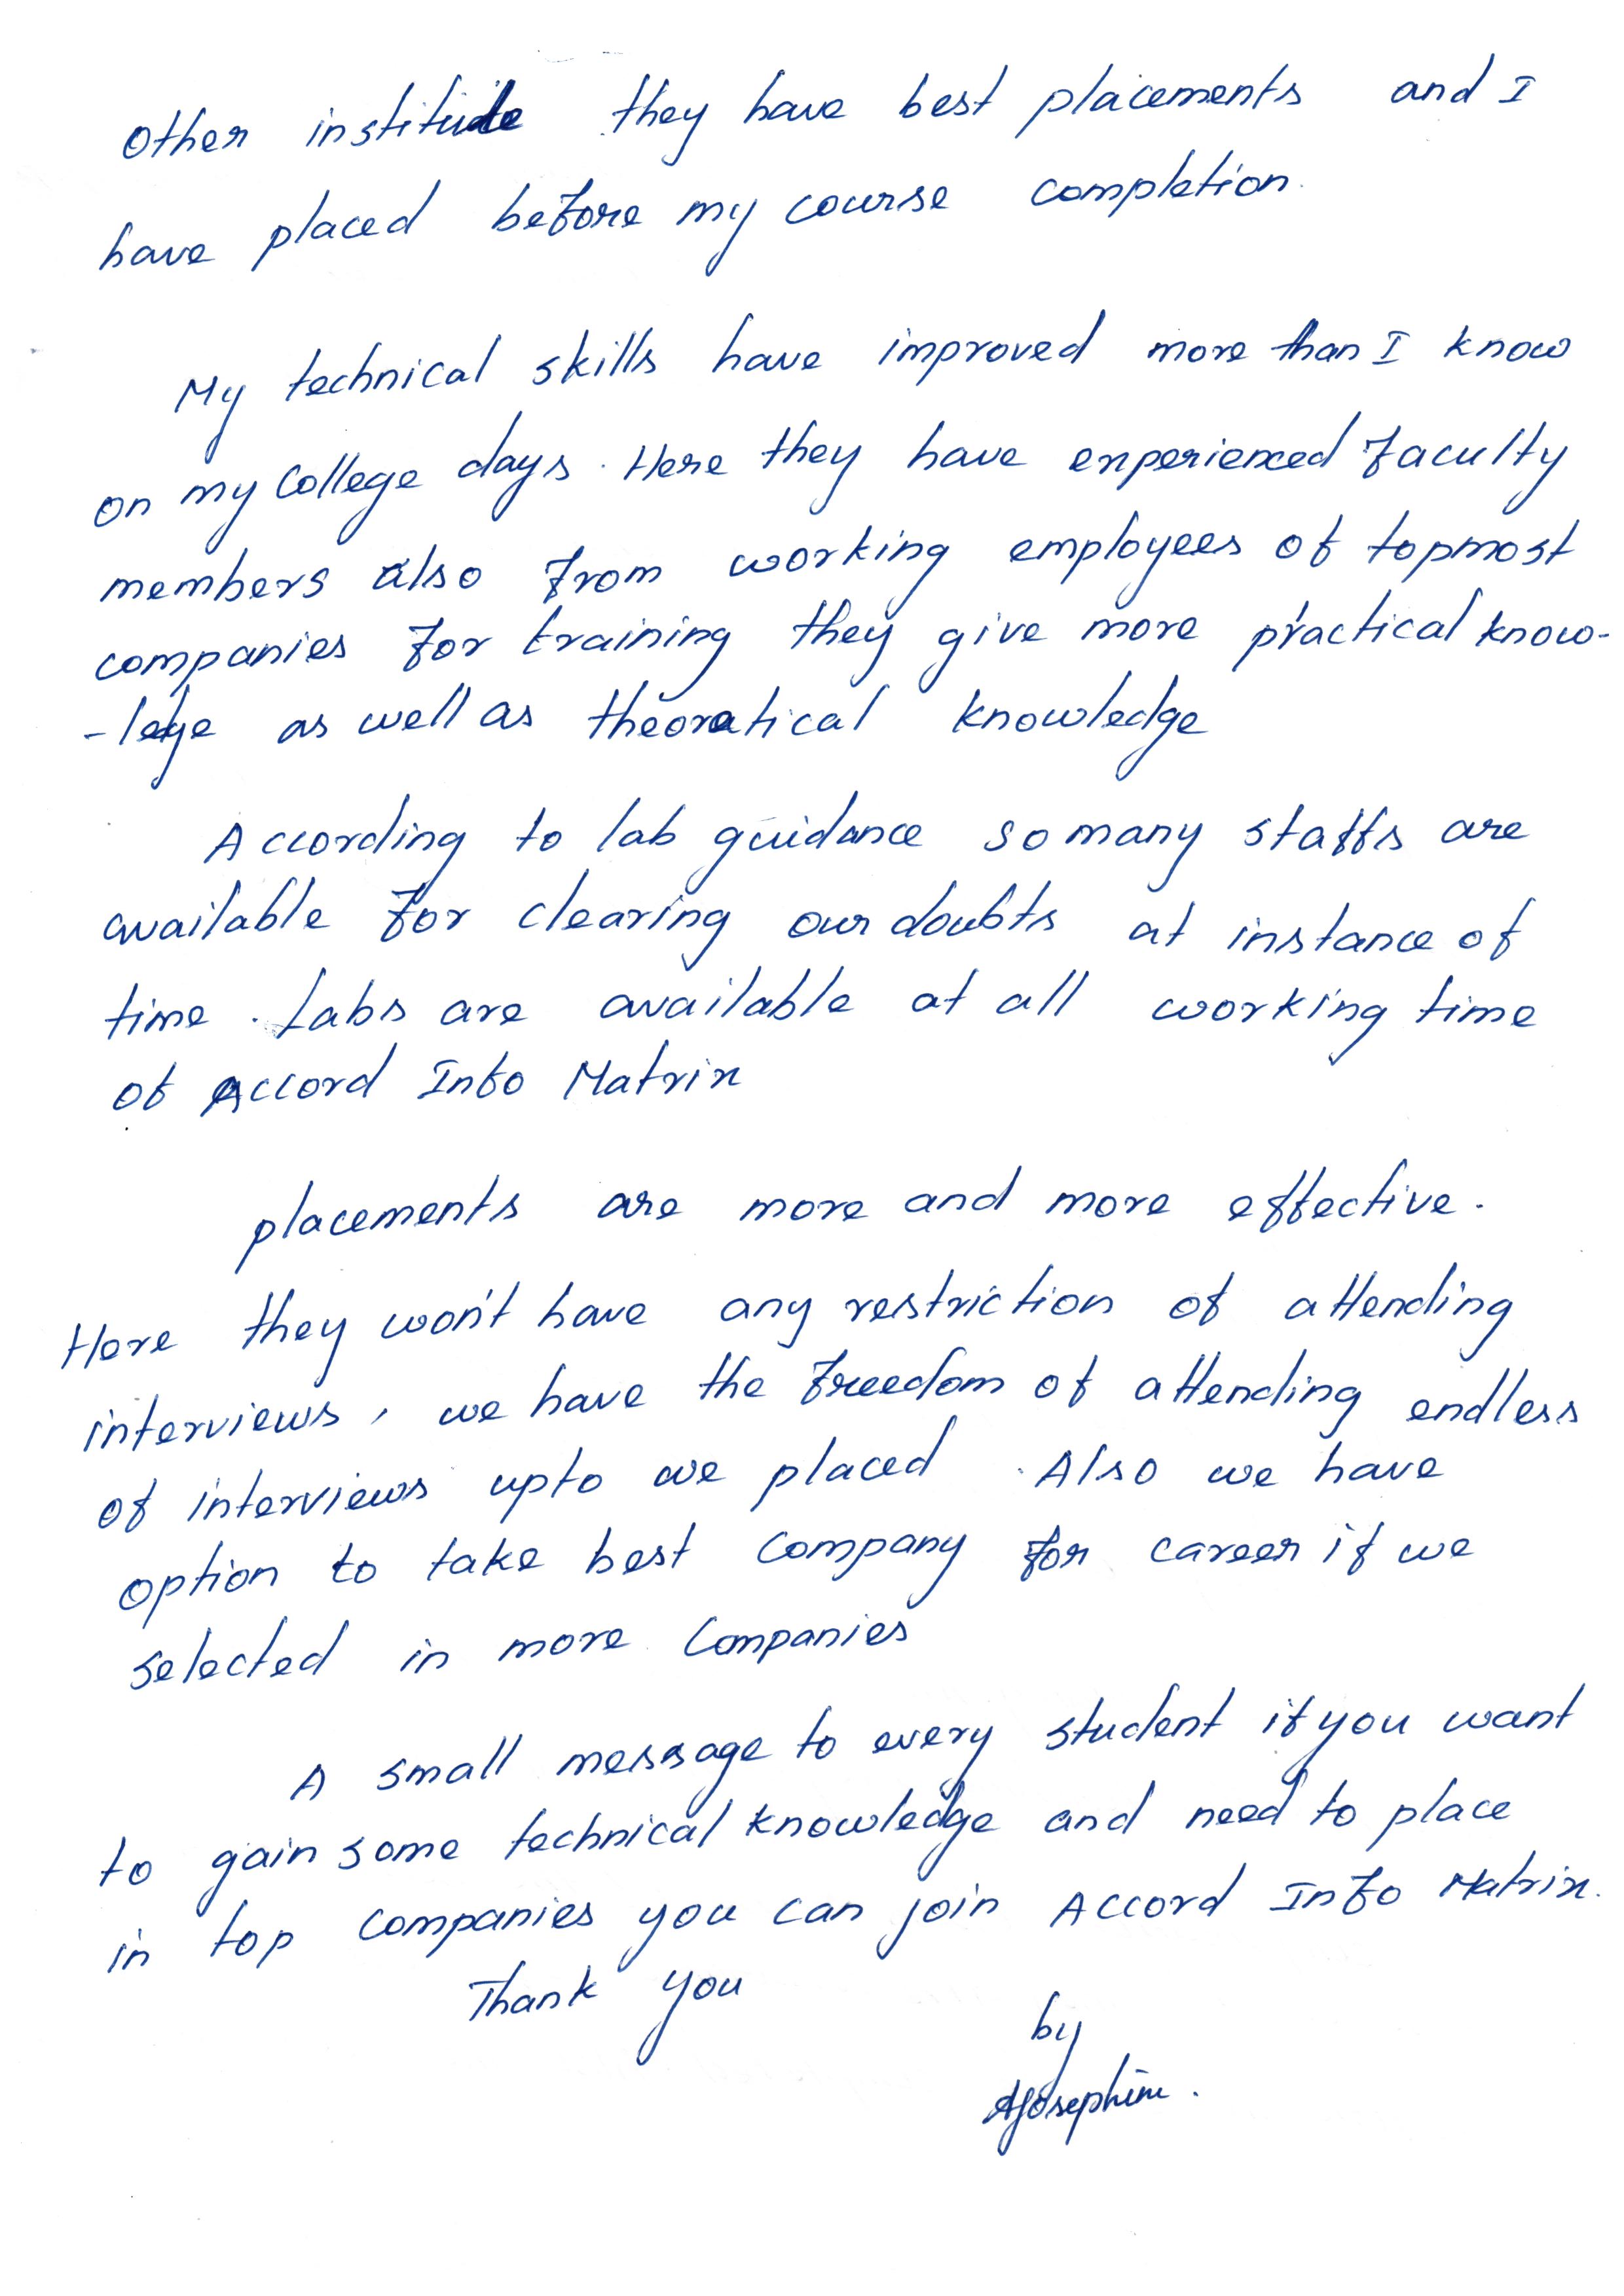 other institute they have best placements and I
have placed before my course completion.
My technical skills have improved more than I know
on my college days. Here they have experienced faculty
members also from working employees of topmost
companies for training they give more practical know-
-ledge as well as theoratical knowledge
According to lab guidance so many staffs are
available for clearing our doubts at instance of
time. Labs are available at all working time
of Accord Info Matrix
placements are more and more effective.
Here they won't have any restriction of attending
interviews, we have the freedom of attending endless
of interviews upto we placed. Also we have
option to take best company for career if we
selected in more companies
A small message to every student if you want
to gain some technical knowledge and need to place
in top companies you can join Accord Info Matrix.
Thank you
by
AJosephine.